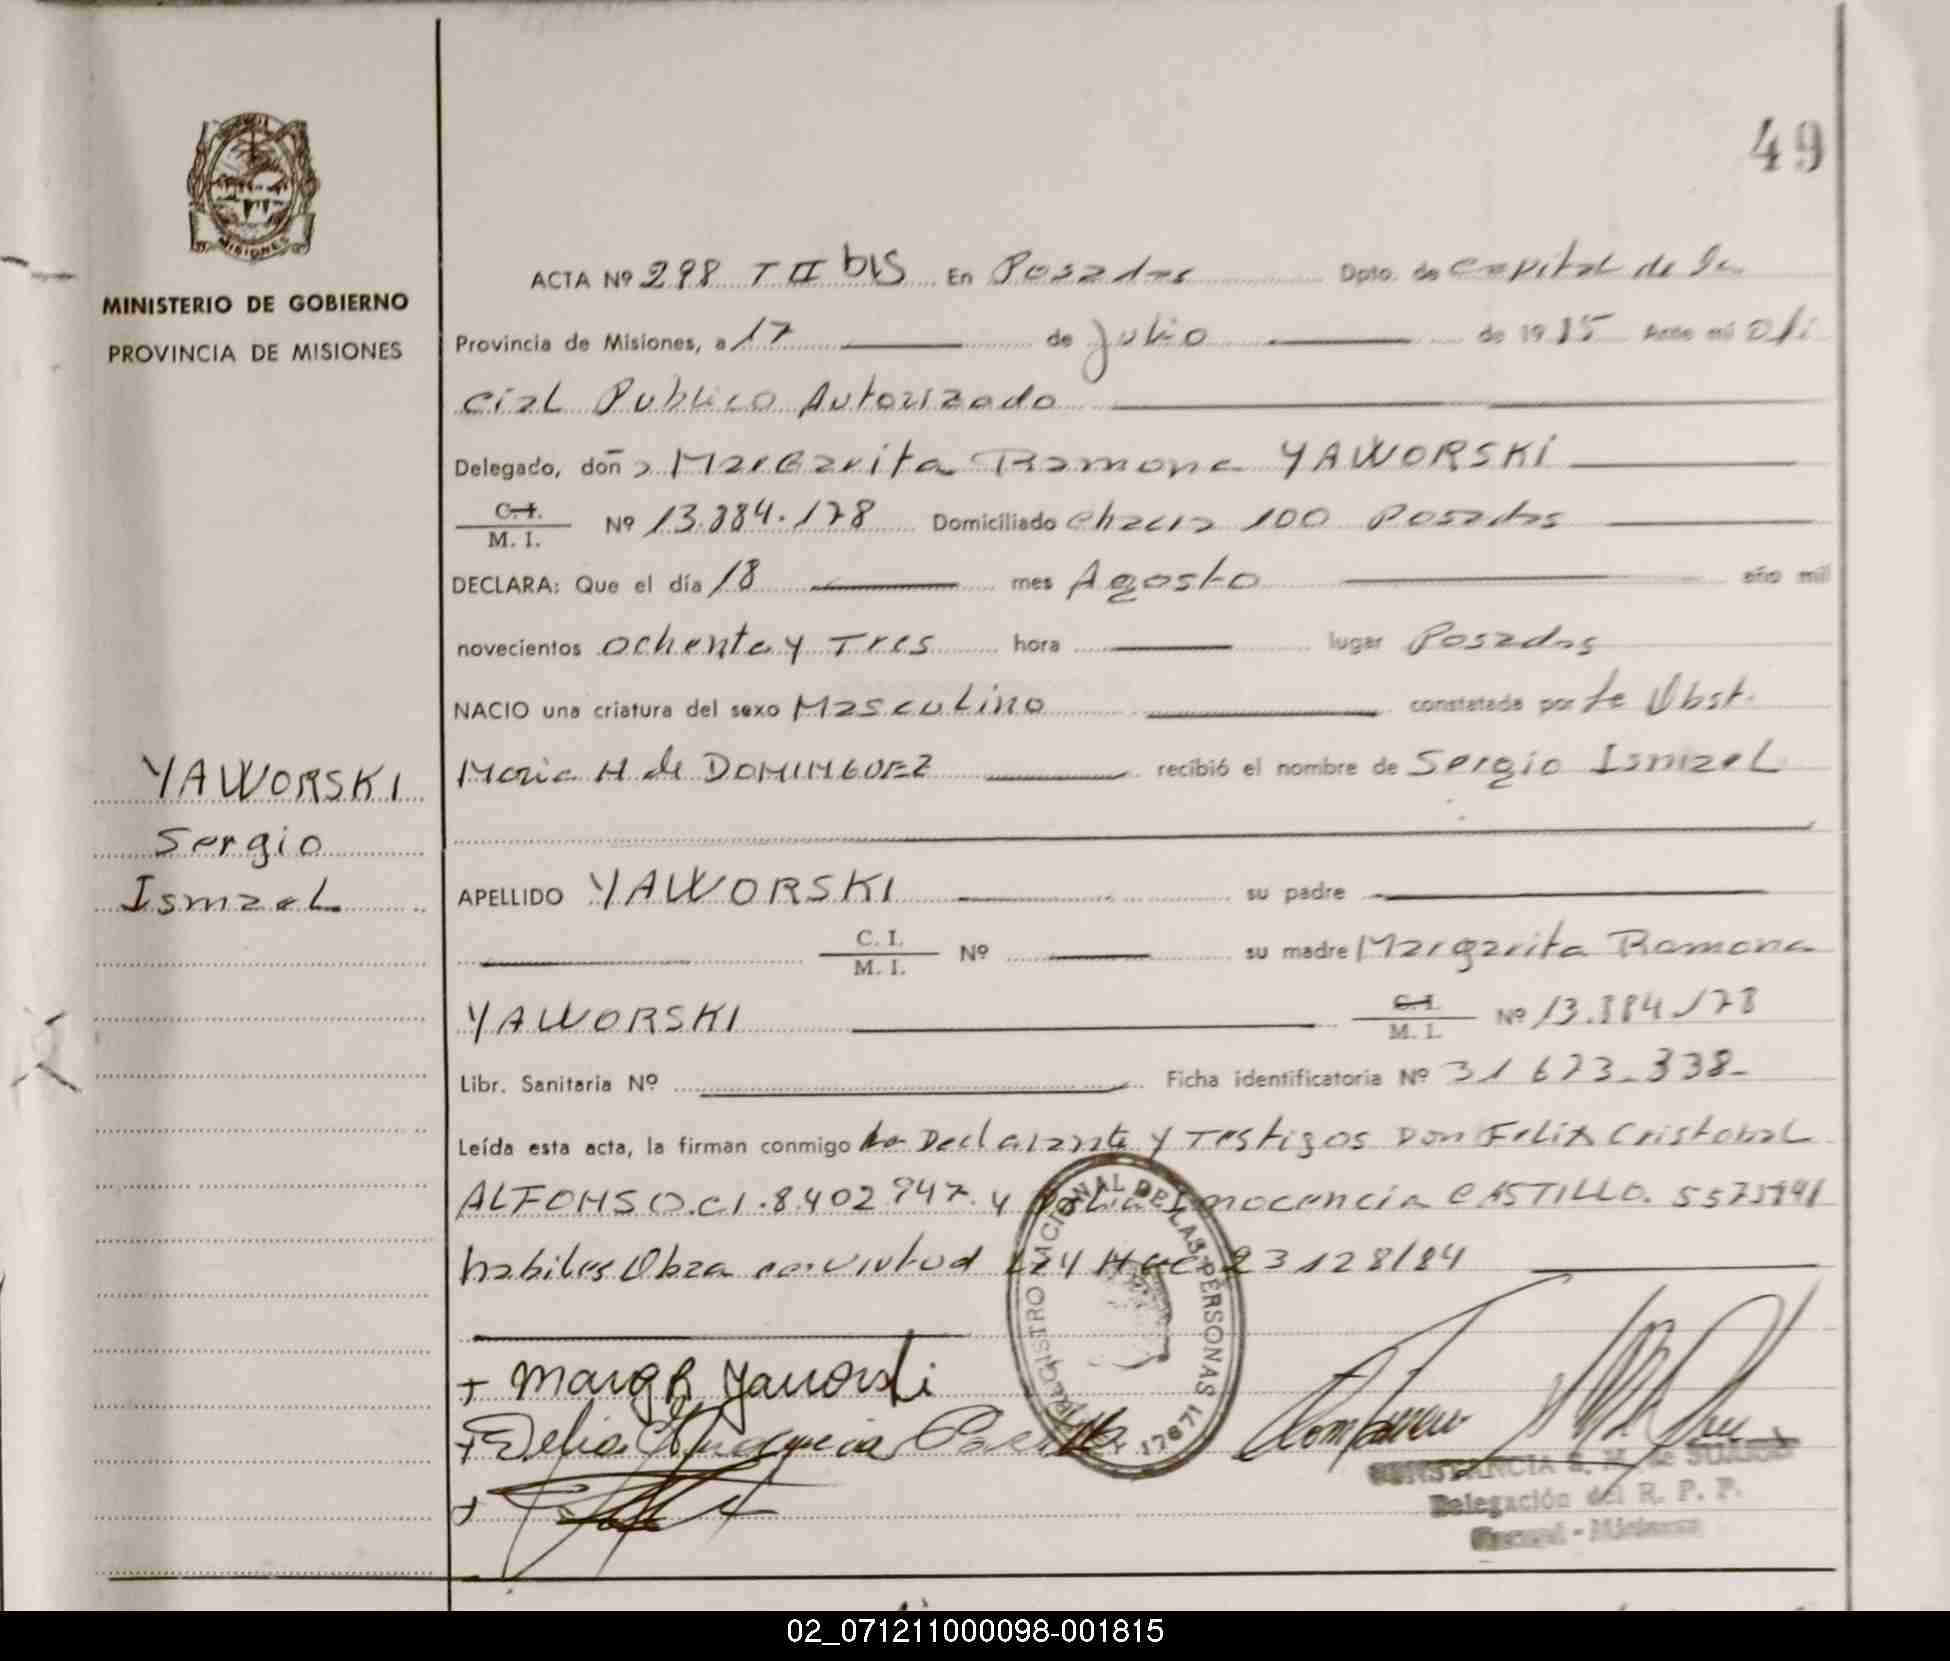 49
MISIONES
MINISTERIO DE GOBIERNO
PROVINCIA DE MISIONES
YAWORSKI
Sergio
Ismael
ACTA Nº 298 T II bis En Posadas Dpto. de Capital de la
Provincia de Misiones, a 17 de Julio de 1985 Ante mi Ofi
cial Publico Autorizado
Delegado, doña Margarita Ramona YAWORSKI
C.I.
M. I. Nº 13.884.178 Domiciliado Chacra 100 Posadas
DECLARA: Que el día 18 mes Agosto año mil
novecientos ochenta y Tres hora lugar Posadas
NACIO una criatura del sexo Masculino constatada por la Obst.
Maria H de DOMINGUEZ recibió el nombre de Sergio Ismael
APELLIDO YAWORSKI su padre
C. I.
M. I. Nº su madre Margarita Ramona
YAWORSKI C.I.
M. I. Nº 13.884.178
Libr. Sanitaria Nº Ficha identificatoria Nº 31 673-338-
Leída esta acta, la firman conmigo la Declarante y Testigos Don Felix Cristobal
ALFONSO.CI.8.402.947. y Delia Inocencia CASTILLO.
habiles Obra en virtud Ley Nac 23128/84
REGISTRO NACIONAL DE LAS PERSONAS
17671
+ Marg R Yaworski
+ Delia
+
CONSTANCIA S. M. de
Delegación del R. P. P.
- Misiones
02_071211000098-001815